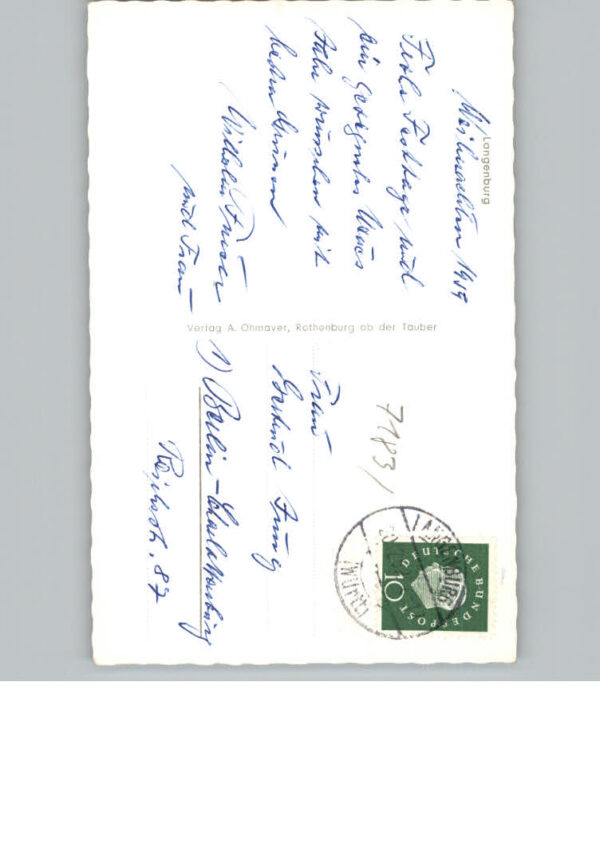 Langenburg
Weihnachten 1959
Frohe Festtage und
ein gesegnetes Neues
Jahr wünschen mit
lieben Grüssen
Wilhelm
und Frau
Verlag A. Ohmayer, Rothenburg ob der Tauber
Frau
Gertrud Jung
1) Berlin-Charlottenburg
87
7183/
DEUTSCHE BUNDESPOST
10
LANGENBURG
(WÜRTT)